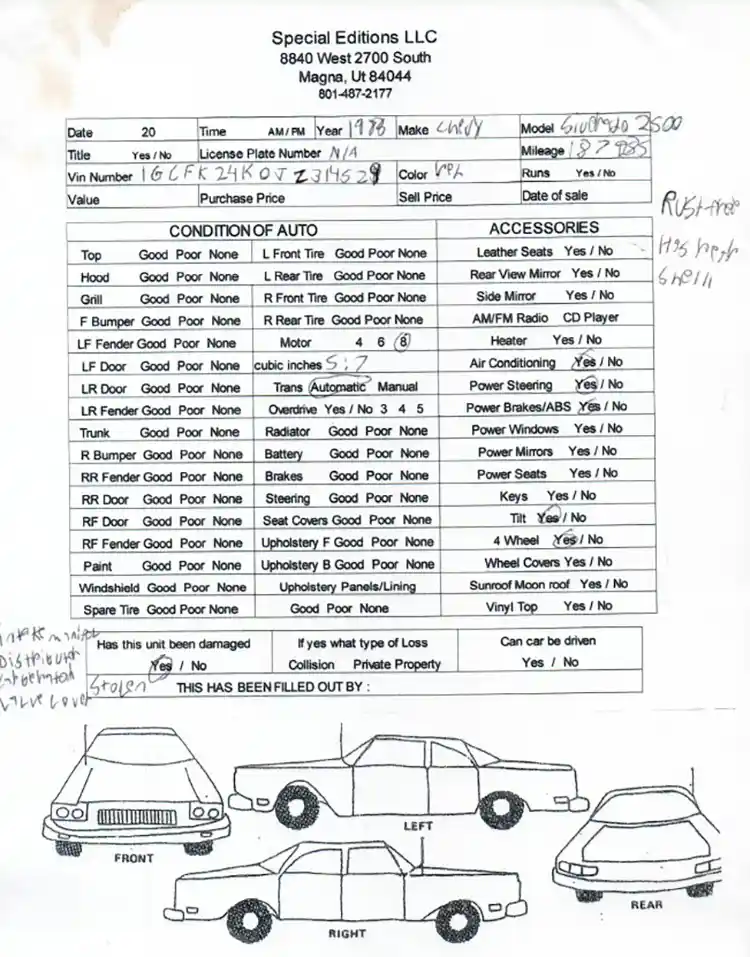 Special Editions LLC
8840 West 2700 South
Magna, Ut 84044
801-487-2177
Date 20 Time AM/PM Year Make Chevy Model Silverado 2500
Title Yes / No License Plate Number N/A Mileage
Vin Number Color Runs Yes / No
Value Purchase Price Sell Price Date of sale
Rust free
Has
CONDITION OF AUTO ACCESSORIES
Top Good Poor None L Front Tire Good Poor None Leather Seats Yes / No
Hood Good Poor None L Rear Tire Good Poor None Rear View Mirror Yes / No
Grill Good Poor None R Front Tire Good Poor None Side Mirror Yes / No
F Bumper Good Poor None R Rear Tire Good Poor None AM/FM Radio CD Player
LF Fender Good Poor None Motor 4 6 8 Heater Yes / No
LF Door Good Poor None cubic inches 5:7 Air Conditioning Yes / No
LR Door Good Poor None Trans Automatic Manual Power Steering Yes / No
LR Fender Good Poor None Overdrive Yes / No 3 4 5 Power Brakes/ABS Yes / No
Trunk Good Poor None Radiator Good Poor None Power Windows Yes / No
R Bumper Good Poor None Battery Good Poor None Power Mirrors Yes / No
RR Fender Good Poor None Brakes Good Poor None Power Seats Yes / No
RR Door Good Poor None Steering Good Poor None Keys Yes / No
RF Door Good Poor None Seat Covers Good Poor None Tilt Yes / No
RF Fender Good Poor None Upholstery F Good Poor None 4 Wheel Yes / No
Paint Good Poor None Upholstery B Good Poor None Wheel Covers Yes / No
Windshield Good Poor None Upholstery Panels/Lining Sunroof Moon roof Yes / No
Spare Tire Good Poor None Good Poor None Vinyl Top Yes / No
Has this unit been damaged If yes what type of Loss Can car be driven
Yes / No Collision Private Property Yes / No
Stolen THIS HAS BEEN FILLED OUT BY :
Valve Cover
LEFT
FRONT
REAR
RIGHT